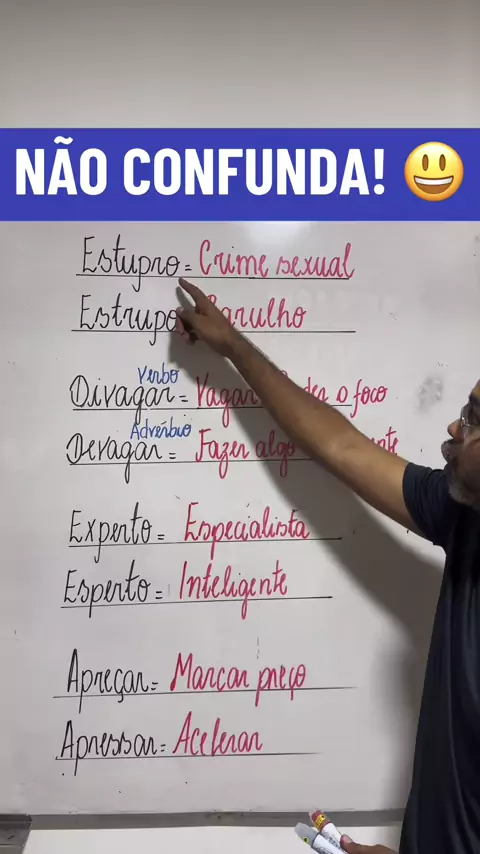 NÃO CONFUNDA! 😃
Estupro = Crime sexual
Estrupo Barulho
Verbo
Divagar = Vagar o foco
Advérbio
Devagar = Fazer algo
Experto = Especialista
Esperto = Inteligente
Apreçar = Marcar preço
Apressar = Acelerar